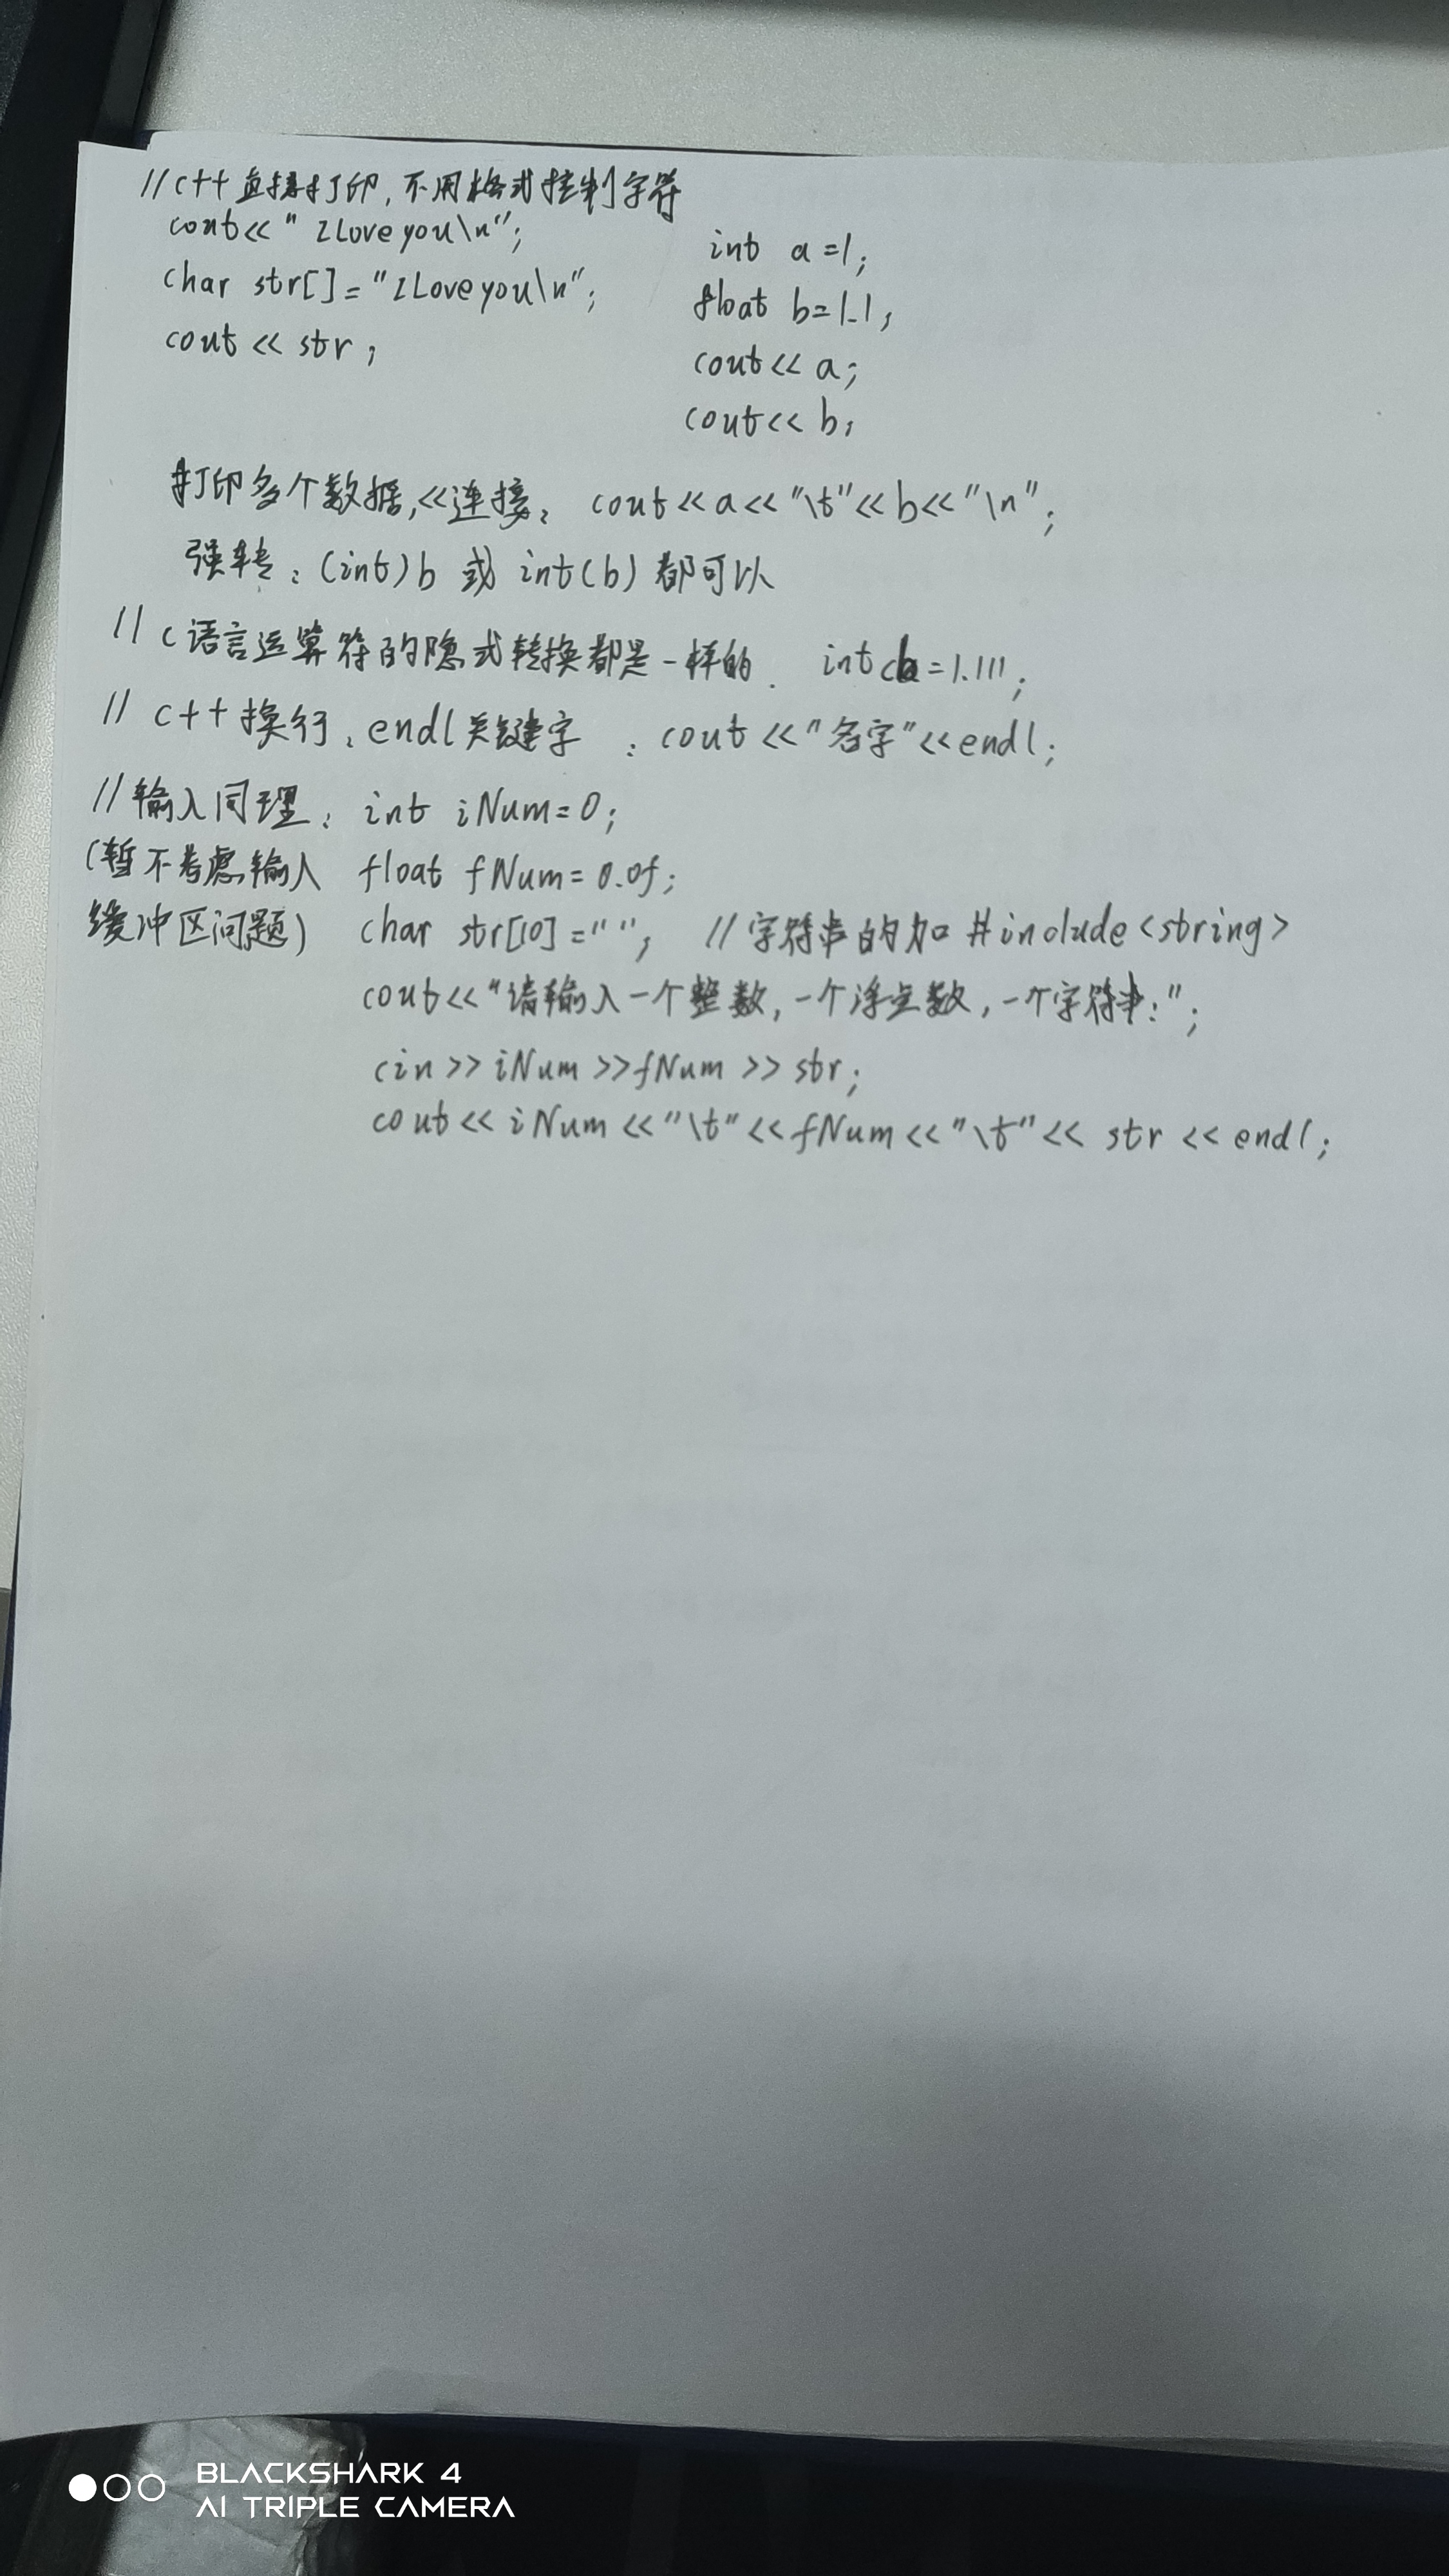 //c++直接打印,不用格式控制字符
cout<<"I Love you\n";
char str[]="I Love you\n";
cout<<str;
int a=1;
float b=1.1;
cout<<a;
cout<<b;
打印多个数据,<<连接: cout<<a<<"\t"<<b<<"\n";
强转: (int)b 或 int(b) 都可以
//c语言运算符的隐式转换都是一样的. int =1.111;
//c++换行:endl关键字 : cout<<"名字"<<endl;
//输入同理: int iNum=0;
(暂不考虑输入 float fNum=0.0f;
缓冲区问题) char str[10]=""; //字符串的加 #include<string>
cout<<"请输入一个整数,一个浮点数,一个字符串:";
cin>>iNum>>fNum>>str;
cout<<iNum<<"\t"<<fNum<<"\t"<<str<<endl;
BLACKSHARK 4
AI TRIPLE CAMERA